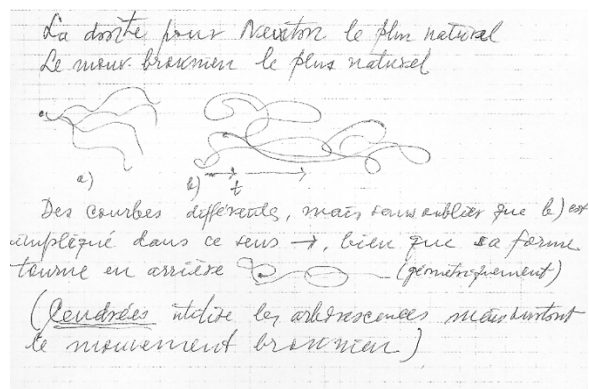 La droite pour Newton le plus naturel
Le mouv. brownien le plus naturel
a)
b)
t
Des courbes différentes, mais sans oublier que b) est
impliqué dans ce sens →, bien que sa forme
tourne en arrière (géométriquement)
(Cendrées utilise les arborescences mais surtout
le mouvement brownien)